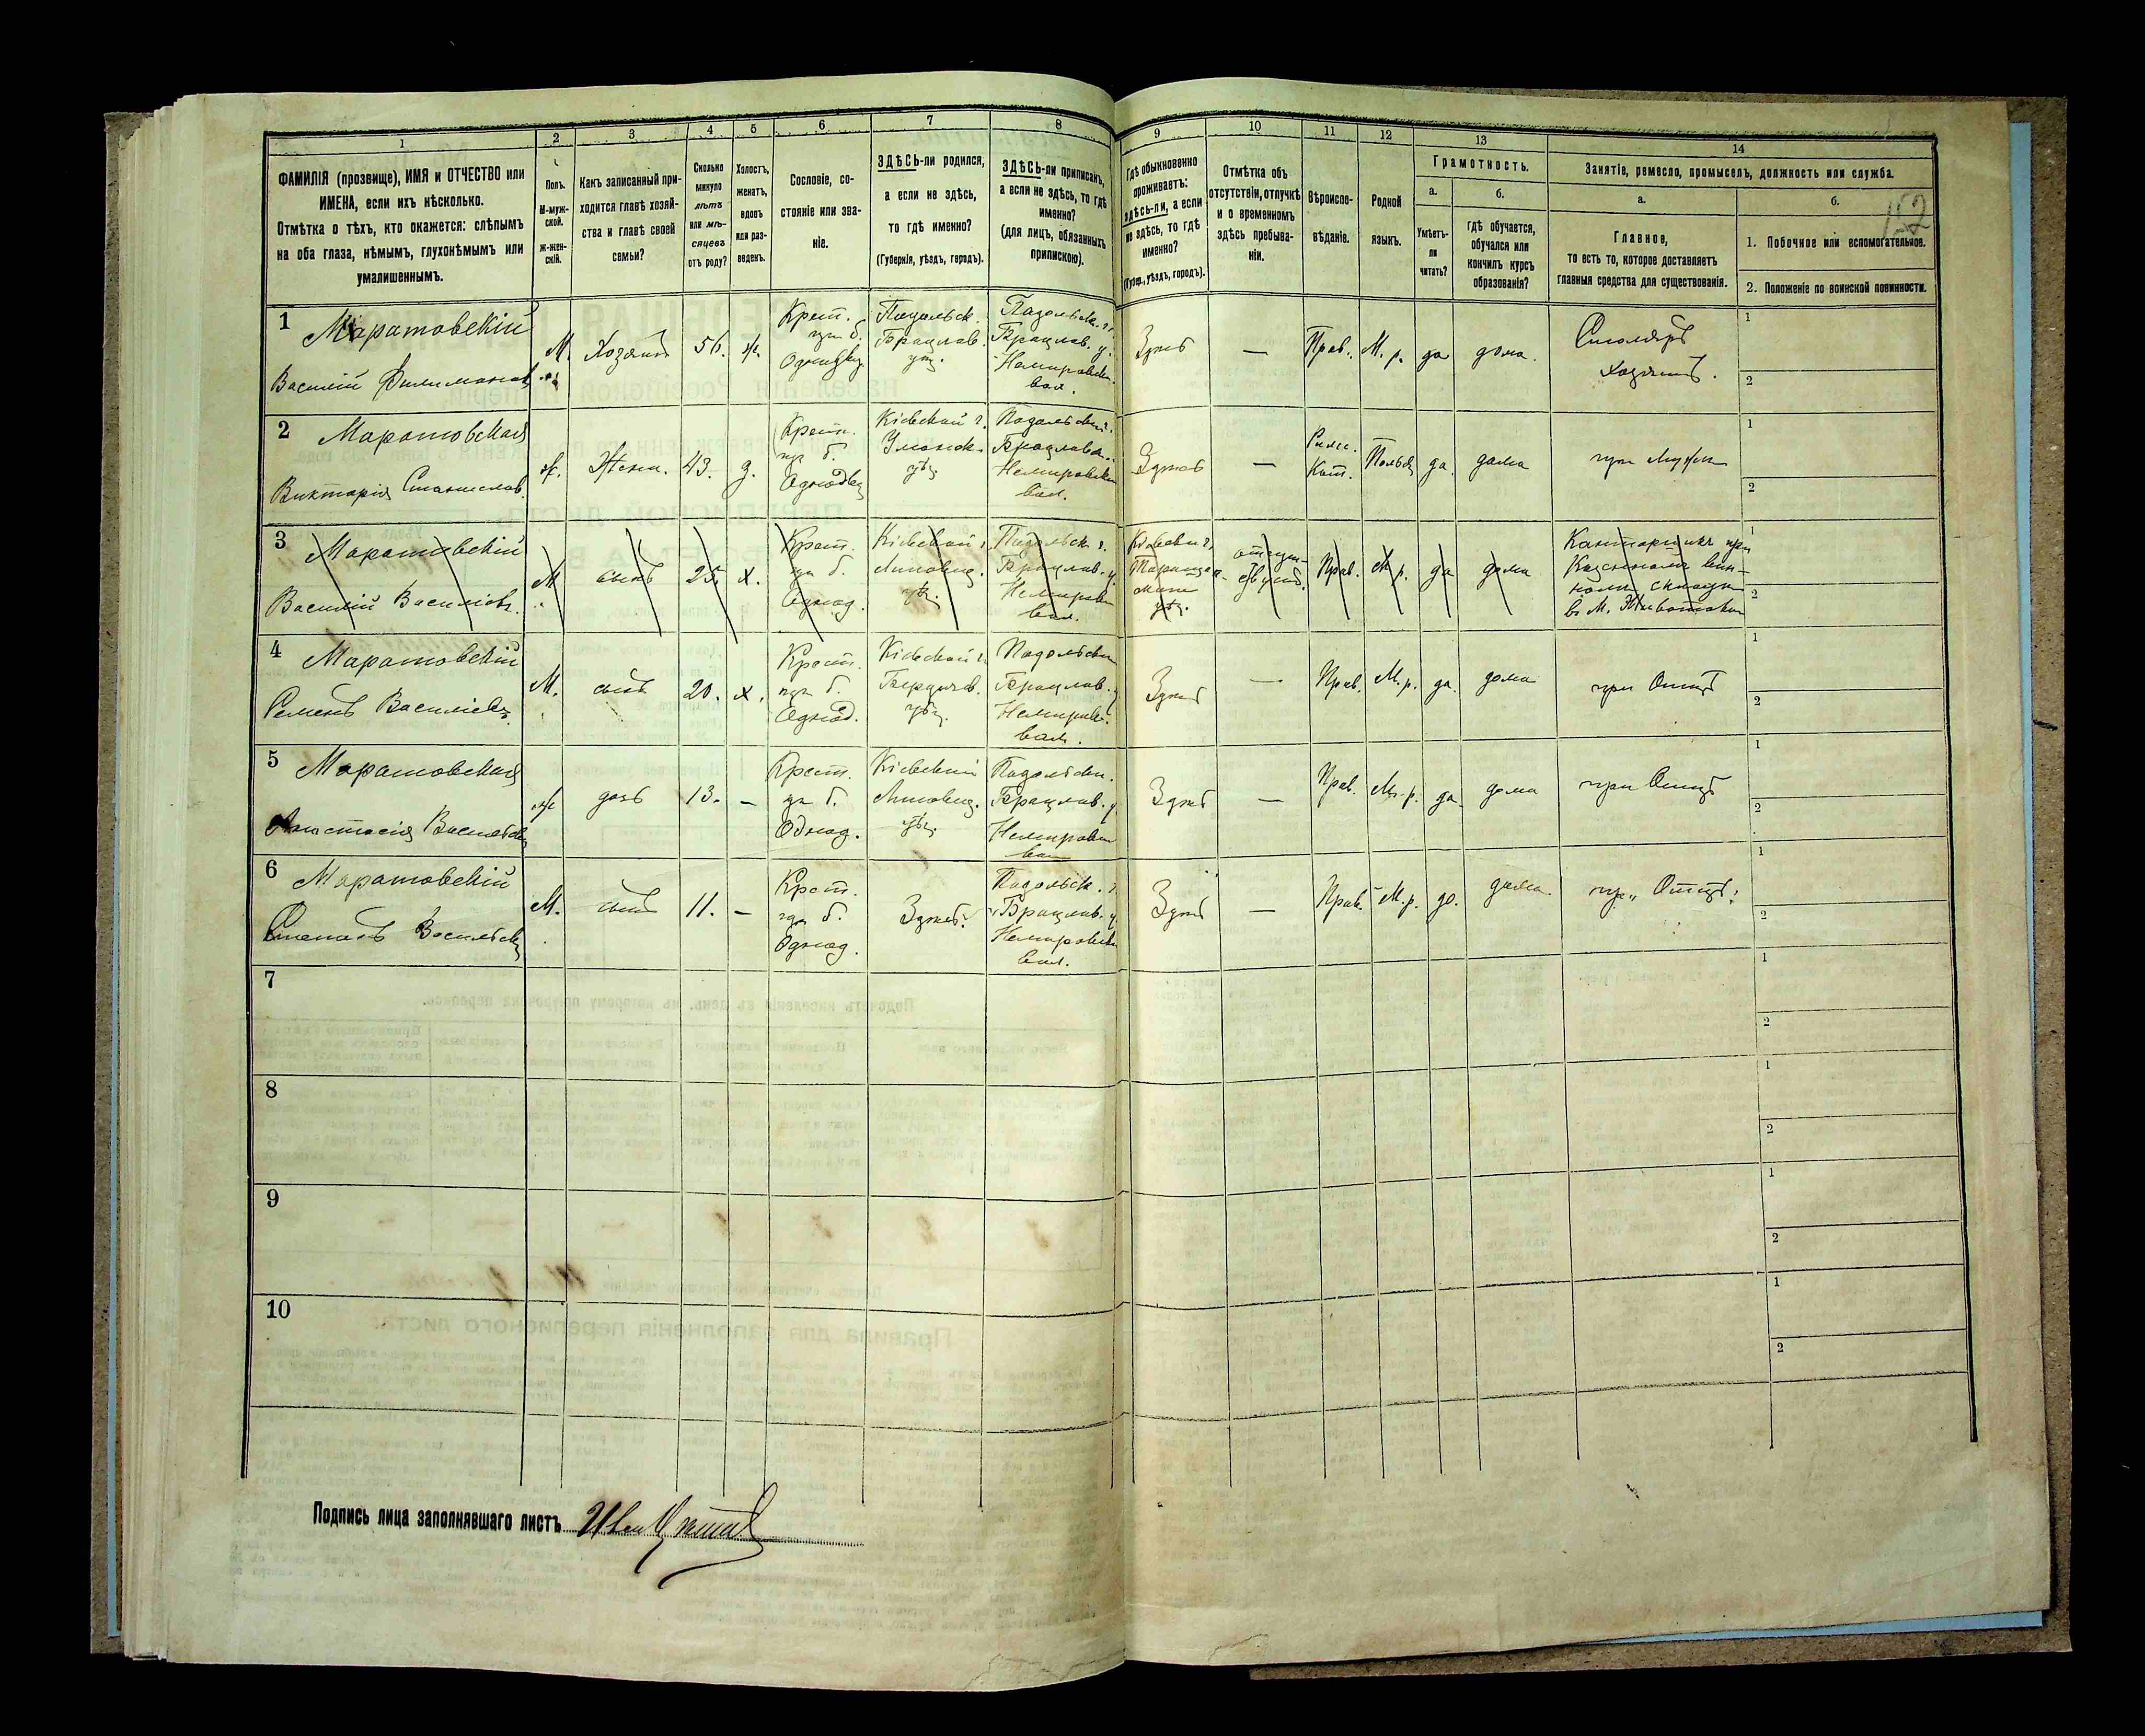 1 2 3 4 5 6 7 8 9 10 11 12 13 14
ФАМИЛІЯ (прозвище), ИМЯ и ОТЧЕСТВО или
ИМЕНА, если ихъ нѣсколько.
Отмѣтка о тѣхъ, кто окажется: слѣпымъ
на оба глаза, нѣмымъ, глухонѣмымъ или
умалишеннымъ.
Полъ.
М-муж-
ской.
ж-жен-
скій.
Какъ записанный при-
ходится главѣ хозяй-
ства и главѣ своей
семьи?
Сколько
минуло
лѣтъ
или мѣ-
сяцевъ
отъ роду?
Холостъ,
женатъ,
вдовъ
или раз-
веденъ.
Сословіе, со-
стояніе или зва-
ніе.
ЗДѢСЬ-ли родился,
а если не здѣсь,
то гдѣ именно?
(Губернія, уѣздъ, городъ).
ЗДѢСЬ-ли приписанъ,
а если не здѣсь, то гдѣ
именно?
(для лицъ, обязанныхъ
припискою).
Гдѣ обыкновенно
проживаетъ:
здѣсь-ли, а если
не здѣсь, то гдѣ
именно?
(Губер., уѣздъ, городъ).
Отмѣтка объ
отсутствіи, отлучкѣ
и о временномъ
здѣсь пребыва-
ніи.
Вѣроиспо-
вѣданіе.
Родной
языкъ.
Грамотность.
а.
Умѣетъ-
ли
читать?
б.
гдѣ обучается,
обучался или
кончилъ курсъ
образованія?
Занятіе, ремесло, промыселъ, должность или служба.
а.
Главное,
то есть то, которое доставляетъ
главныя средства для существованія.
б.
152
1. Побочное или вспомогательное.
2. Положеніе по воинской повинности.
1
Маратовскій
Василій Филимонов
М.
Хозяинъ
56.
ж.
Крест.
из б.
Подольск.
Брацлав.
уѣз.
Подольск. г.
Брацлав. у.
Немировск.
вол.
Здѣсь
—
Прав.
М. р.
да
дома.
Столяръ
хозяинъ.
1
2
2
Маратовская
Викторія Станислав.
ж.
Жена.
43.
з.
Крест.
из б.
Однодв
Кіевской г.
Уманск.
уѣз.
Подольск г.
Брацлавск.
Немировск
вол.
Здѣсь
—
Римс.
Кат.
Польск
да
дома
при Мужѣ
1
2
3
Маратовскій
Василій Василіев.
М
сынъ
25.
х.
Крест.
из б.
Однод.
Кіевской г.
Липовец.
уѣз.
Подольск г.
Брацлав. у
Немиров
вол.
Кіевск г.
Таращан-
скаго
уѣз.
отсут-
ствует.
Прав.
М. р.
да
дома
Канторщикъ при
Казенномъ вин-
номъ складѣ
въ М. Животовкѣ
1
2
4
Маратовскій
Семенъ Василіев.
М.
сынъ
20.
х.
Крест.
из б.
Однод.
Кіевской г.
Бердичев.
уѣз.
Подольск
Брацлав. у
Немиров.
вол.
Здѣсь
—
Прав.
М. р.
да.
дома
при Отцѣ
1
2
5
Маратовская
Анастасія Васильев
ж
дочь
13.
—
Крест.
из б.
Однод.
Кіевской
Липовец.
уѣз.
Подольск.
Брацлав. у
Немировск
вол
Здѣсь
—
Прав.
М. р.
да
дома
при Отцѣ
1
2
6
Маратовскій
Степанъ Васильев
М.
сынъ
11.
—
Крест.
из б.
Однод.
Здѣсь.
Подольск. г.
Брацлав. у
Немировск
вол.
Здѣсь
—
Прав.
М. р.
да.
дома.
при Отцѣ.
1
2
7
1
2
8
1
2
9
1
2
10
1
2
Подпись лица заполнявшаго листъ